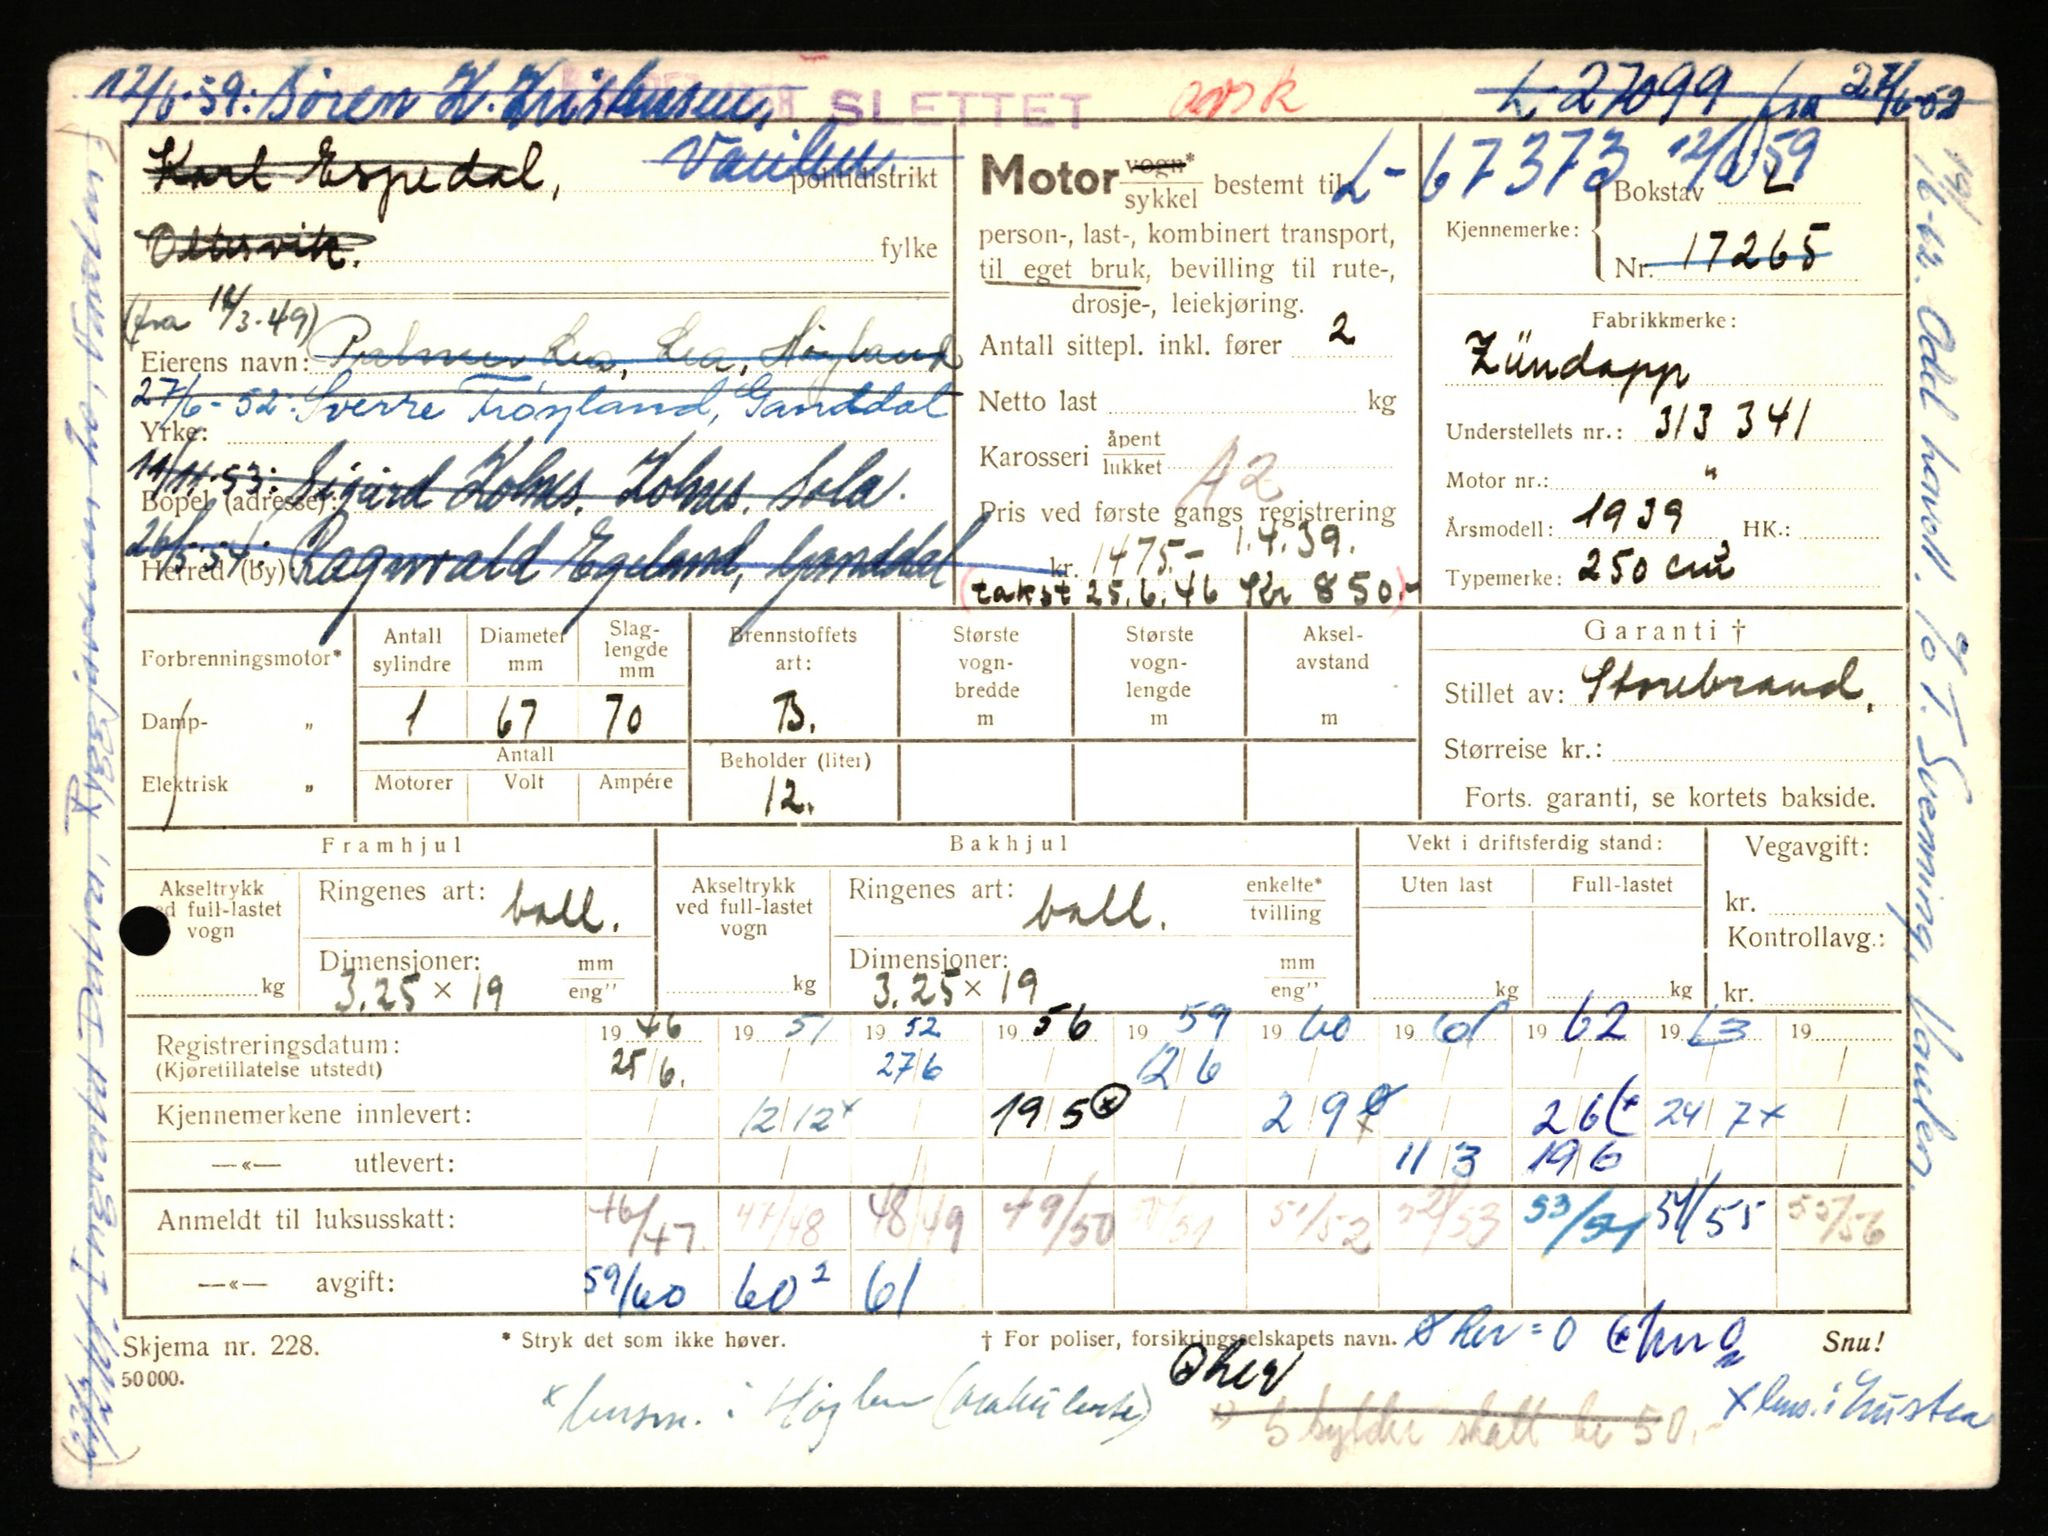 12/6-59: Søren K. Kristensen,
SLETTET
avsk
L-27099 fra 27/6-52
Karl Espedal,
Vaulen
politidistrikt
Oltesvik.
fylke
(fra 14/3-49)
Eierens navn: Palmer Lea, Lea, Høyland
27/6-52: Sverre Frøyland, Ganddal
Yrke:
11/11-53: Sigurd Kolnes. Kolnes. Sola.
Bopel (adresse):
26/5-54: Ragnvald Egeland, Ganddal
Herred (by)
Motor vogn*
sykkel bestemt til
person-, last-, kombinert transport,
til eget bruk, bevilling til rute-,
drosje-, leiekjøring.
Antall sittepl. inkl. fører 2
Netto last kg
Karosseri åpent
lukket
A2
Pris ved første gangs registrering
kr. 1475.- 1.4.39.
(takst 25.6.46 Kr 850.-)
L-67373 12/6 59
Kjennemerke: Bokstav L
Nr. 17265
Fabrikkmerke:
Zündapp
Understellets nr.: 313 341
Motor nr.: "
Årsmodell: 1939 HK.:
Typemerke: 250 cm³
Forbrenningsmotor*
Damp- "
Elektrisk "
Antall sylindre
1
Diameter mm
67
Slag-lengde mm
70
Antall
Motorer Volt Ampére
Brennstoffets art:
B.
Beholder (liter)
12.
Største vogn-bredde m
Største vogn-lengde m
Aksel-avstand m
Garanti †
Stillet av: Storebrand.
Størreise kr.:
Forts. garanti, se kortets bakside.
Framhjul
Akseltrykk
ved full-lastet
vogn
kg
Ringenes art: ball.
Dimensjoner: mm
3.25 × 19 eng"
Bakhjul
Akseltrykk
ved full-lastet
vogn
kg
Ringenes art: ball. enkelte*
tvilling
Dimensjoner: mm
3.25 × 19 eng"
Vekt i driftsferdig stand:
Uten last Full-lastet
kg kg
Vegavgift:
kr.
Kontrollavg.:
kr.
Registreringsdatum: 19 46 19 51 19 52 19 56 19 59 19 60 19 61 19 62 19 63 19
(Kjøretillatelse utstedt) 25/6. 27/6 12/6
Kjennemerkene innlevert: 12/12 x 19/5 ⊗ 2/9 2/6 24/7 x
—«— utlevert: 11/3 19/6
Anmeldt til luksusskatt: 46/47 47/48 48/49 49/50 50/51 51/52 52/53 53/54 54/55 55/56
—«— avgift: 59/60 60² 61
Skjema nr. 228.
50 000.
* Stryk det som ikke høver.
† For poliser, forsikringsselskapets navn.
Snu!
skylder skatt kr 50.-
19/6-62. Odd Lavoll. T. Svenning, Vaulen.